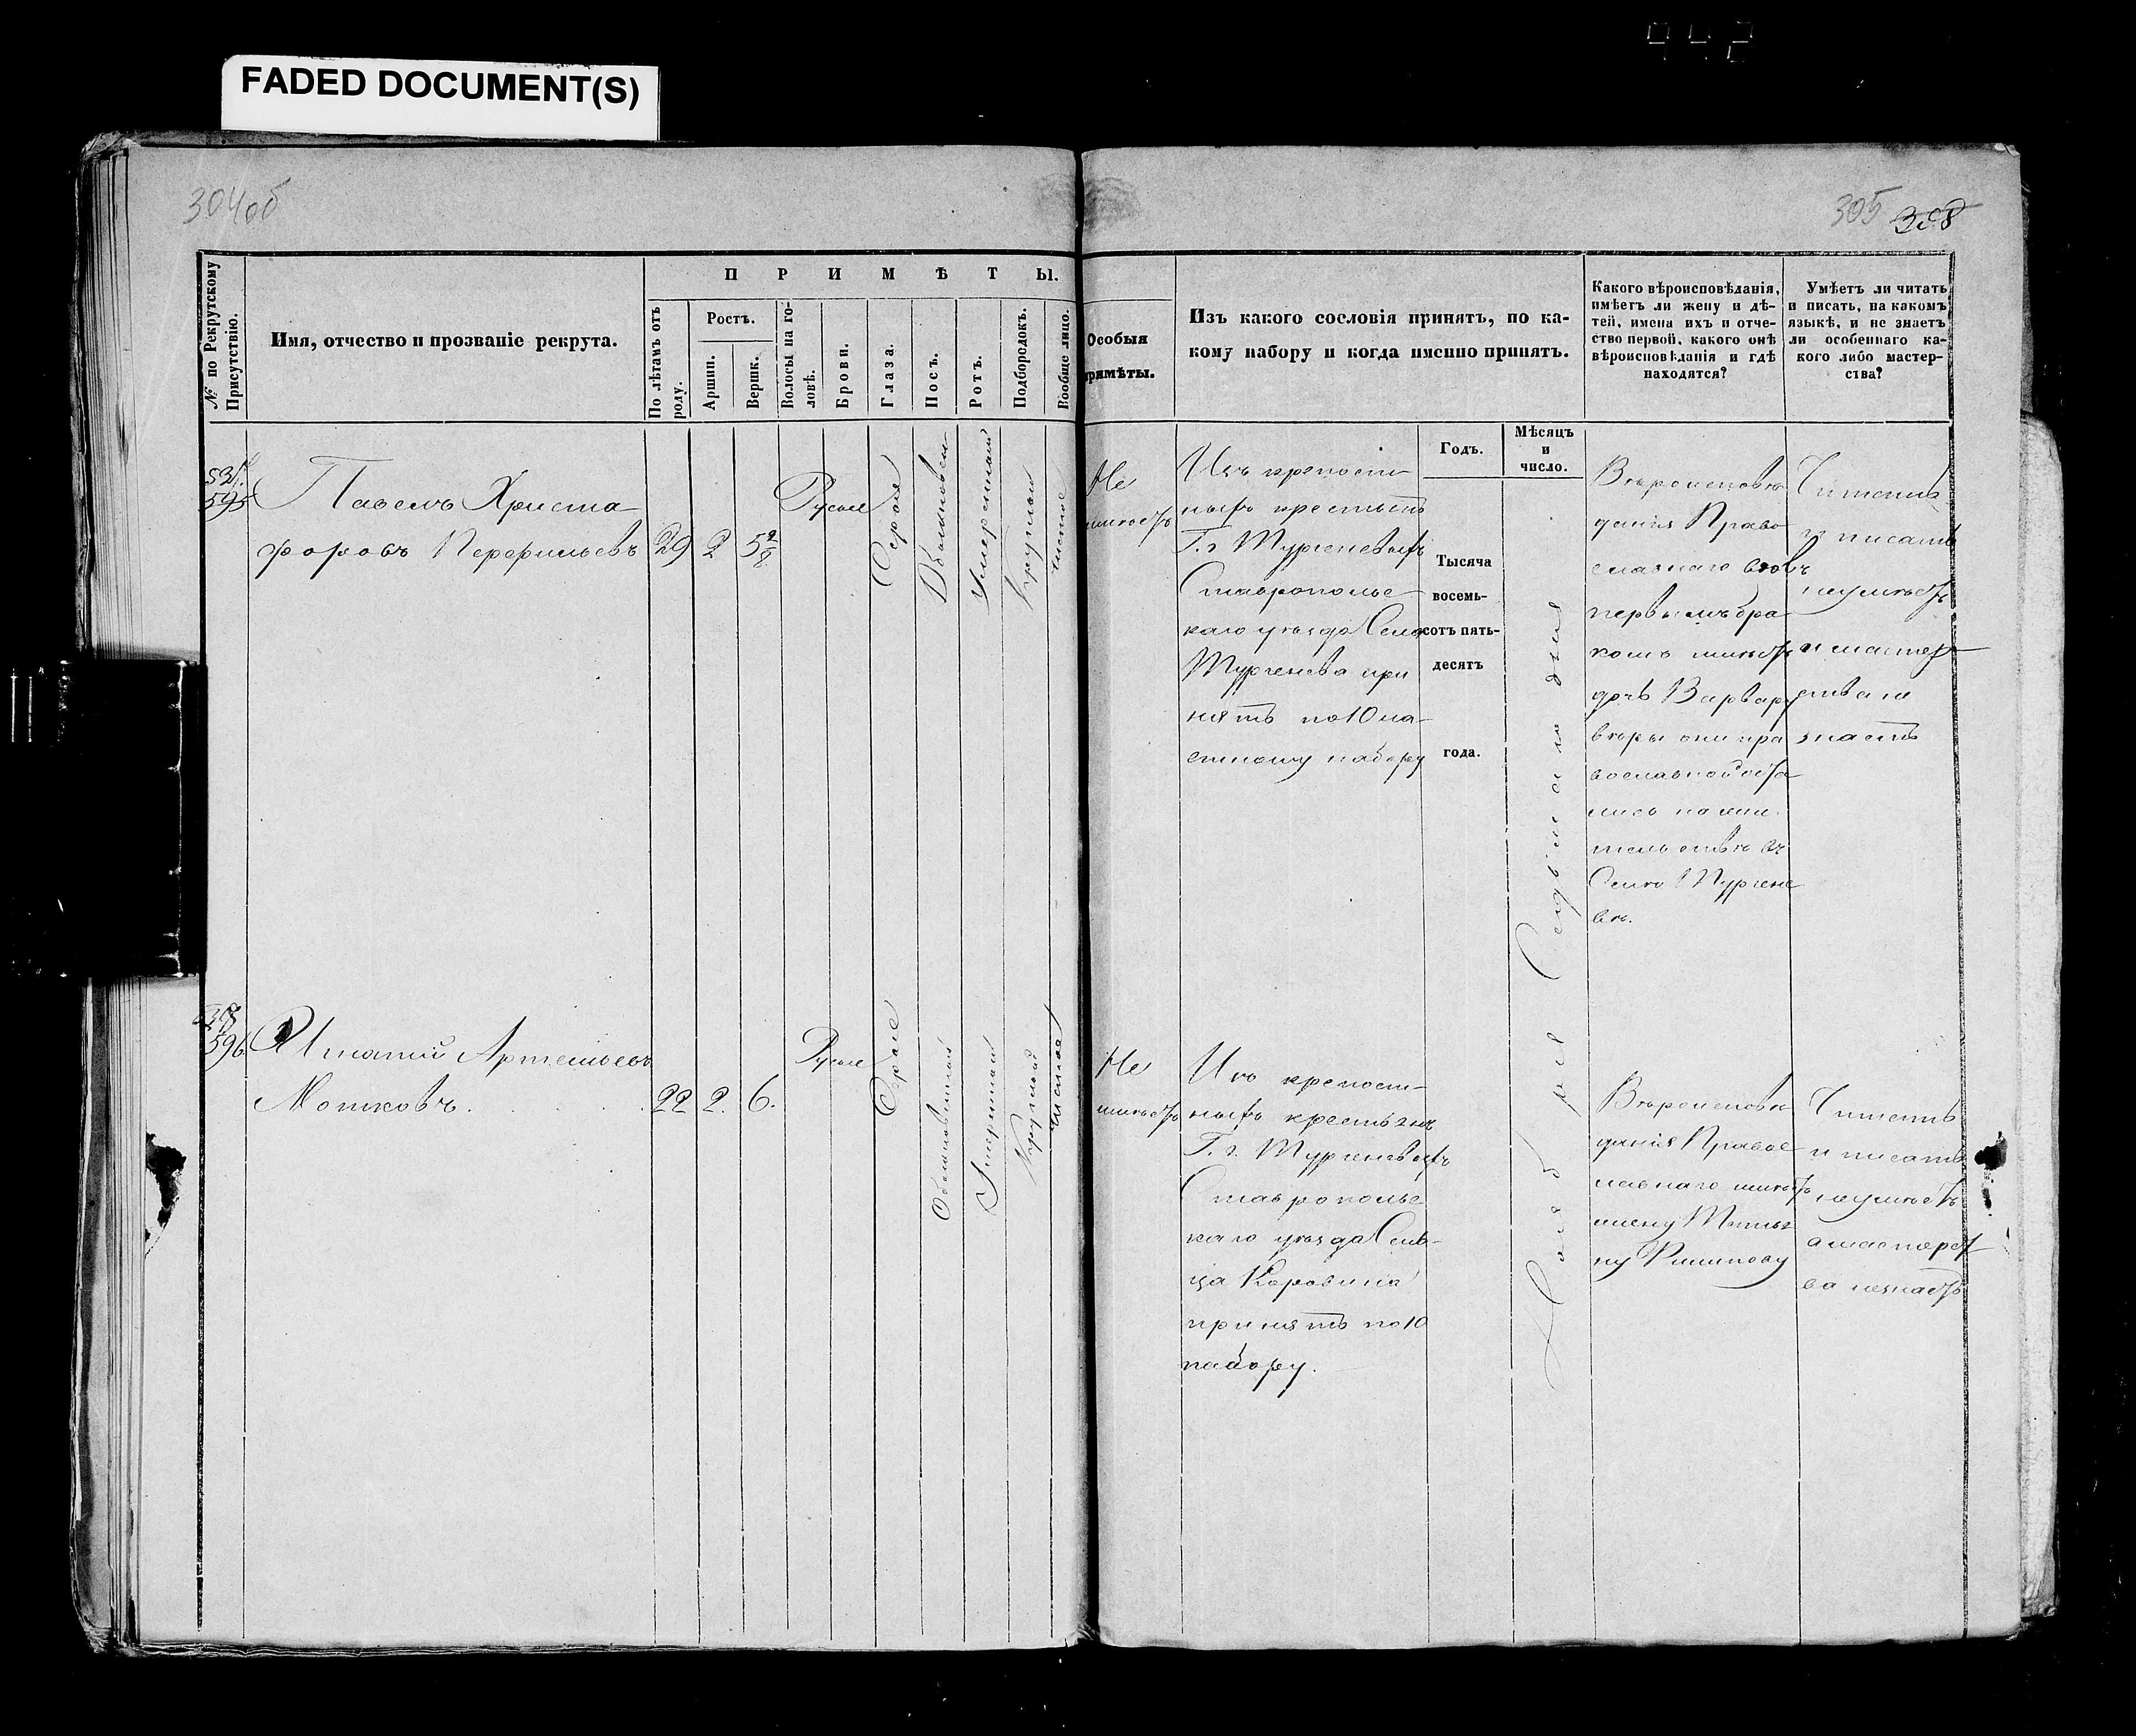 FADED DOCUMENT(S)
304об
305 308
№ по Рекрутскому Присутствію.
Имя, отчество и прозваніе рекрута.
ПРИМѢТЫ.
По лѣтамъ отъ роду.
Ростъ.
Аршин.
Вершк.
Волосы на го-
ловѣ.
Брови.
Глаза.
Носъ.
Ротъ.
Подбородокъ.
Вообще лицо.
Особыя
примѣты.
Изъ какого сословія принятъ, по ка-
кому набору и когда именно принятъ.
Какого вѣроисповѣданія,
имѣетъ ли жену и дѣ-
тей, имена ихъ и отче-
ство первой, какого онѣ
вѣроисповѣданія и гдѣ
находятся?
Умѣетъ ли читать
и писать, на какомъ
языкѣ, и не знаетъ
ли особеннаго ка-
кого либо мастер-
ства?
Годъ.
Мѣсяцъ
и
число.
595
Павелъ Христа
форовъ Перфильевъ
29
2
Русые
Серые
Обыкновен
Умеренный
Круглый
чистое
Не
имѣетъ
Изъ крепост
ныхъ крестьянъ
Г.г. Тургеневыхъ
Ставрополье
каго уѣзда Села
Тургенева при
нятъ по 10 ча
стному набору
Тысяча
восемь-
сотъ пять-
десят
года.
Ноября Седьмаго дня
Вѣроисповѣ
данія Право
славнаго вдовъ
первымъ бра
комъ имѣетъ
дочь Варвару
вѣры они пра
вославной оста
лись на жи
тельствѣ въ
Селѣ Тургене
вѣ.
Читать
и писать
неумѣетъ
и мастер
ства не
знаетъ
596
Игнатий Артемьевъ
Мотковъ.
22
2.
6.
Русые
Серые
Обыкновенный
Умеренный
Круглый
Чистое
Не
имѣетъ
Изъ крепост
ныхъ крестьянъ
Г.г. Тургеневыхъ
Ставрополье
каго уѣзда Сель-
ца Коровина
принятъ по 10
набору.
Вѣроисповѣ
данія Правос
лавнаго имѣетъ
жену Татья
ну Филипову
Читать
и писать
неумѣетъ
а мастерст
ва незнаетъ